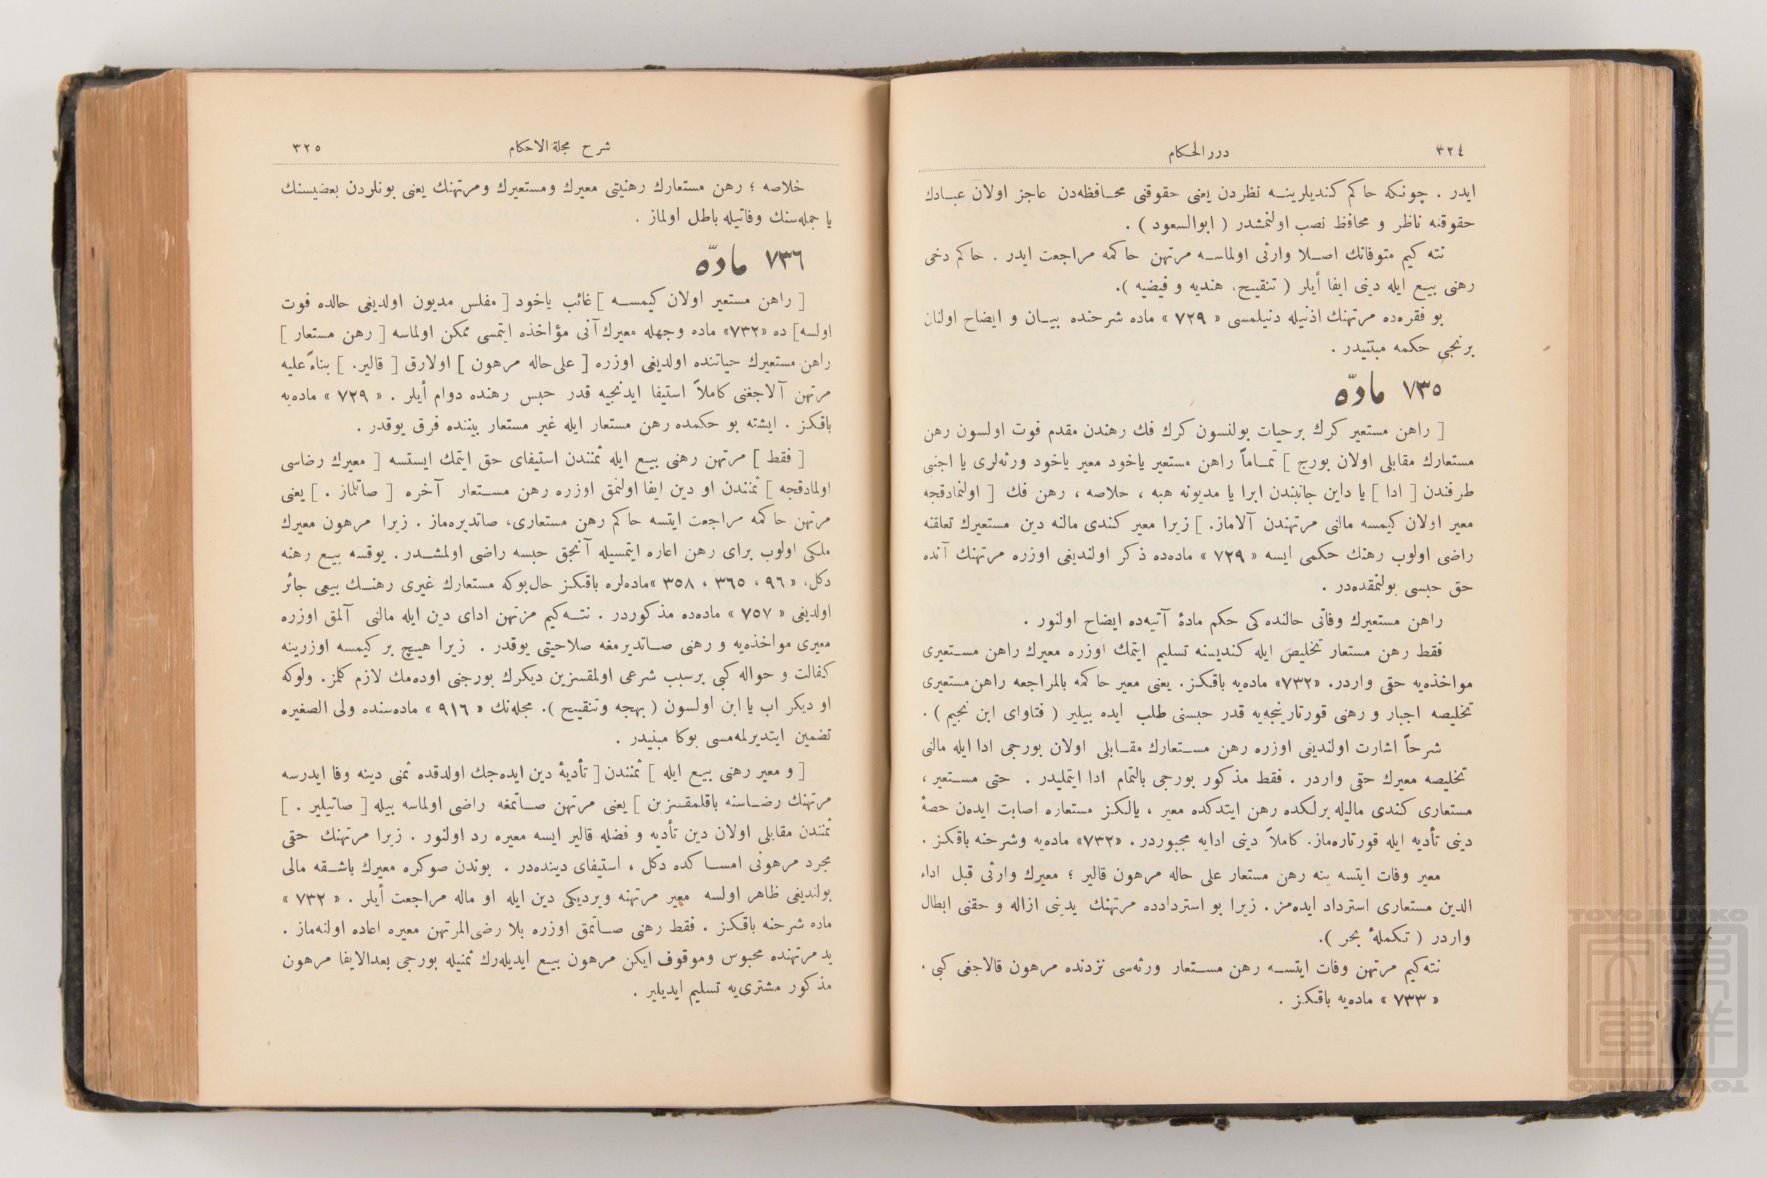 ٣٢٤
درر الحكام
ايدر . چونكه حاكم كنديلرينه نظردن يعنى حقوقنى محافظه‌دن عاجز اولان عبادك
حقوقنه ناظر و محافظ نصب اولنمشدر ( ابوالسعود ) .
نته كيم متوفانك اصلا وارثى اولماسه مرتهن حاكمه مراجعت ايدر . حاكم دخى
رهنى بيع ايله دينى ايفا أيلر ( تنقيح، هنديه و فيضيه ).
بو فقره‌ده مرتهنك اذنيله دنيلمسى « ٧٢٩ » ماده شرحنده بيان و ايضاح اولنان
برنجى حكمه مبتنيدر .
٧٣٥ مادّه
[ راهن مستعير كرك برحيات بولنسون كرك فك رهندن مقدم فوت اولسون رهن
مستعارك مقابلى اولان بورج ] تماماً راهن مستعير ياخود معير ياخود ورثه‌لرى يا اجنبى
طرفندن [ ادا ] يا داين جانبندن ابرا يا مديونه هبه ، خلاصه ، رهن فك [ اولنمادقجه
معير اولان كيمسه مالنى مرتهندن آلاماز. ] زيرا معير كندى مالنه دين مستعيرك تعلقنه
راضى اولوب رهنك حكمى ايسه « ٧٢٩ » ماده‌ده ذكر اولنديغى اوزره مرتهنك آنده
حق حبسى بولنمقده‌در .
راهن مستعيرك وفاتى حالنده كى حكم مادۀ آتيه‌ده ايضاح اولنور .
فقط رهن مستعار تخليص ايله كنديسنه تسليم ايتمك اوزره معيرك راهن مستعيرى
مواخذه‌يه حقى واردر. «٧٣٢» ماده‌يه باقكز. يعنى معير حاكمه بالمراجعه راهن مستعيرى
تخليصه اجبار و رهنى قورتارنجه‌يه قدر حبسنى طلب ايده بيلير ( فتاواى ابن نجيم ) .
شرحاً اشارت اولنديغى اوزره رهن مستعارك مقابلى اولان بورجى ادا ايله مالنى
تخليصه معيرك حقى واردر . فقط مذكور بورجى بالتمام ادا ايتمليدر . حتى مستعير ،
مستعارى كندى ماليله برلكده رهن ايتدكده معير ، يالكز مستعاره اصابت ايدن حصۀ
دينى تأديه ايله قورتاره‌ماز. كاملاً دينى ادايه مجبوردر. «٧٣٢» ماده‌يه وشرحنه باقكز .
معير وفات ايتسه ينه رهن مستعار على حاله مرهون قالير ؛ معيرك وارثى قبل اداء
الدين مستعارى استرداد ايده‌مز . زيرا بو استردادده مرتهنك يدينى ازاله و حقنى ابطال
واردر ( تكملۀ بحر ).
نته كيم مرتهن وفات ايتسه رهن مستعار ورثه‌سى نزدنده مرهون قالاجغى كبى .
« ٧٣٣ » ماده‌يه باقكز .
شرح مجلة الاحكام
٣٢٥
خلاصه ؛ رهن مستعارك رهنيتى معيرك ومستعيرك ومرتهنك يعنى بونلردن بعضيسنك
يا جمله‌سنك وفاتيله باطل اولماز .
٧٣٦ مادّه
[ راهن مستعير اولان كيمسه ] غائب ياخود [ مفلس مديون اولديغى حالده فوت
اولسه] ده «٧٣٢» ماده وجهله معيرك آنى مؤاخذه ايتمسى ممكن اولماسه [ رهن مستعار ]
راهن مستعيرك حياتنده اولديغى اوزره [ على حاله مرهون ] اولارق [ قالير. ] بناءً عليه
مرتهن آلاجغنى كاملاً استيفا ايدنجيه قدر حبس رهنده دوام أيلر . « ٧٢٩ » ماده‌يه
باقكز . ايشته بو حكمده رهن مستعار ايله غير مستعار بيننده فرق يوقدر .
[ فقط ] مرتهن رهنى بيع ايله ثمنندن استيفاى حق ايتمك ايستسه [ معيرك رضاسى
اولمادقجه ] ثمنندن او دين ايفا اولنمق اوزره رهن مستعار آخره [ صاتلماز . ] يعنى
مرتهن حاكمه مراجعت ايتسه حاكم رهن مستعارى، صاتديره‌ماز . زيرا مرهون معيرك
ملكى اولوب براى رهن اعاره ايتمسيله آنجق حبسه راضى اولمشدر . يوقسه بيع رهنه
دكل. « ٩٦ ، ٣٦٥ ، ٣٥٨ »ماده‌لره باقكز حال‌بوكه مستعارك غيرى رهنك بيعى جائز
اولديغى « ٧٥٧ » ماده‌ده مذكوردر . نته كيم مرتهن اداى دين ايله مالنى آلمق اوزره
معيرى مواخذه‌يه و رهنى صاتديرمغه صلاحيتى يوقدر . زيرا هيچ بر كيمسه اوزرينه
كفالت و حواله كبى برسبب شرعى اولمقسزين ديكرك بورجنى اوده‌مك لازم كلمز. ولوكه
او ديكر اب يا ابن اولسون ( بهجه وتنقيح ). مجله‌نك « ٩١٦ » ماده‌سنده ولى الصغيره
تضمين ايتديرلمه‌مسى بوكا مبنيدر .
[ و معير رهنى بيع ايله ] ثمنندن [ تأديۀ دين ايده‌جك اولدقده ثمنى دينه وفا ايدرسه
مرتهنك رضاسنه باقلمقسزين ] يعنى مرتهن صاتمغه راضى اولماسه بيله [ صاتيلير . ]
ثمنندن مقابلى اولان دين تأديه و فضله قالير ايسه معيره رد اولنور . زيرا مرتهنك حقى
مجرد مرهونى امساكده دكل ، استيفاى دينده‌در . بوندن صوكره معيرك باشقه مالى
بولنديغى ظاهر اولسه معير مرتهنه ويرديكى دين ايله او ماله مراجعت أيلر . « ٧٣٢ »
ماده شرحنه باقكز . فقط رهنى صاتمق اوزره بلا رضى المرتهن معيره اعاده اولنه‌ماز .
يد مرتهنده محبوس وموقوف ايكن مرهون بيع ايديله‌رك ثمنيله بورجى بعدالايفا مرهون
مذكور مشترى‌يه تسليم ايديلير .
TOYO BUNKO